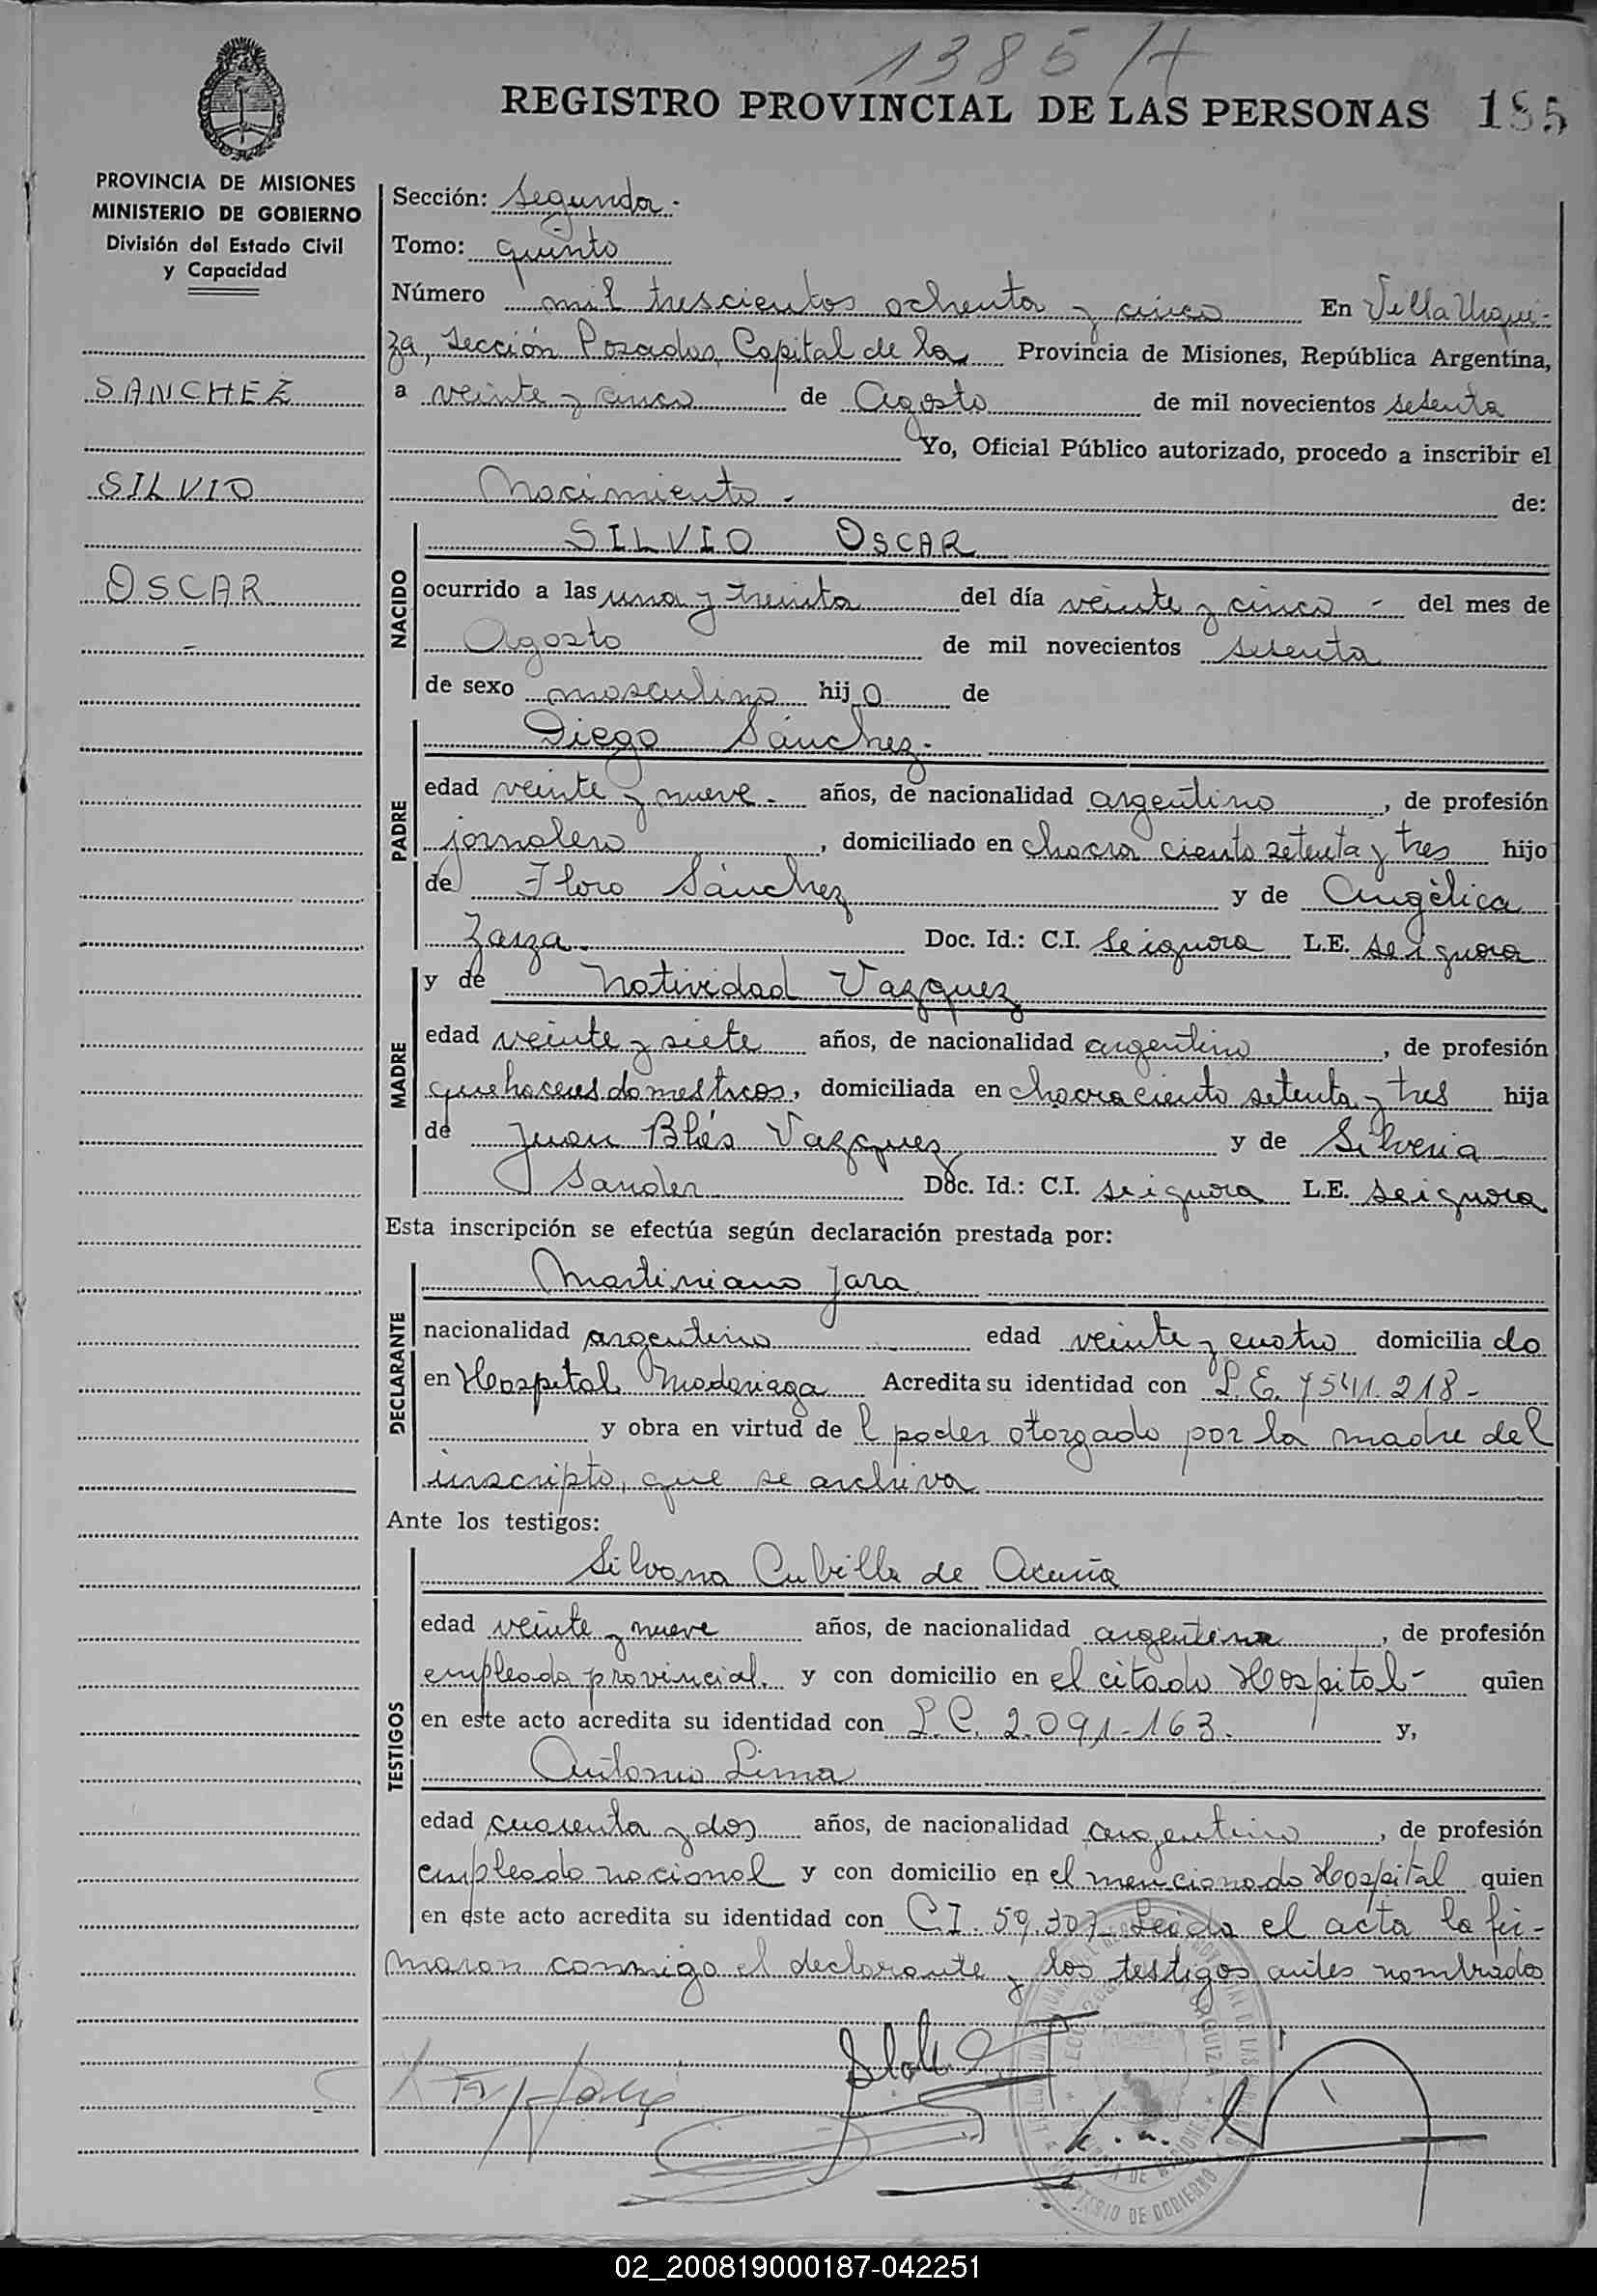 1385/4
REGISTRO PROVINCIAL DE LAS PERSONAS 185
PROVINCIA DE MISIONES
MINISTERIO DE GOBIERNO
División del Estado Civil
y Capacidad
SANCHEZ
SILVIO
OSCAR
Sección: Segunda.-
Tomo: quinto
Número mil trescientos ochenta y cinco En Villa Urqui-
za, Sección Posadas, Capital de la Provincia de Misiones, República Argentina,
a veinte y cinco de Agosto de mil novecientos setenta
Yo, Oficial Público autorizado, procedo a inscribir el
Nacimiento.- de:
NACIDO
SILVIO OSCAR
ocurrido a las una y treinta del día veinte y cinco - del mes de
Agosto de mil novecientos setenta
de sexo masculino hijo de
PADRE
Diego Sánchez.-
edad veinte y nueve.- años, de nacionalidad argentino, de profesión
jornalero, domiciliado en chacra ciento setenta y tres hijo
de Floro Sánchez y de Angélica
Zarza.- Doc. Id.: C.I. se ignora L.E. se ignora
MADRE
y de Natividad Vazquez
edad veinte y siete años, de nacionalidad argentina, de profesión
quehaceres domesticos, domiciliada en chacra ciento setenta y tres hija
de Juan Blás Vazquez y de Silveria
Sander Doc. Id.: C.I. se ignora L.E. se ignora
Esta inscripción se efectúa según declaración prestada por:
DECLARANTE
Martiniano Jara
nacionalidad argentino edad veinte y cuatro domiciliado
en Hospital Madariaga Acredita su identidad con L.E. 7541.218-
y obra en virtud del poder otorgado por la madre del
inscripto, que se archiva
Ante los testigos:
TESTIGOS
Silvana Cubilla de Acuña
edad veinte y nueve años, de nacionalidad argentina, de profesión
empleada provincial. y con domicilio en el citado Hospital- quien
en este acto acredita su identidad con L.C. 2.091-163.- y,
Antonio Lima
edad cuarenta y dos años, de nacionalidad argentino, de profesión
empleado nacional y con domicilio en el mencionado Hospital quien
en este acto acredita su identidad con C.I. 59.307. Leida el acta la fir-
maron conmigo el declarante y los testigos antes nombrados
02_200819000187-042251